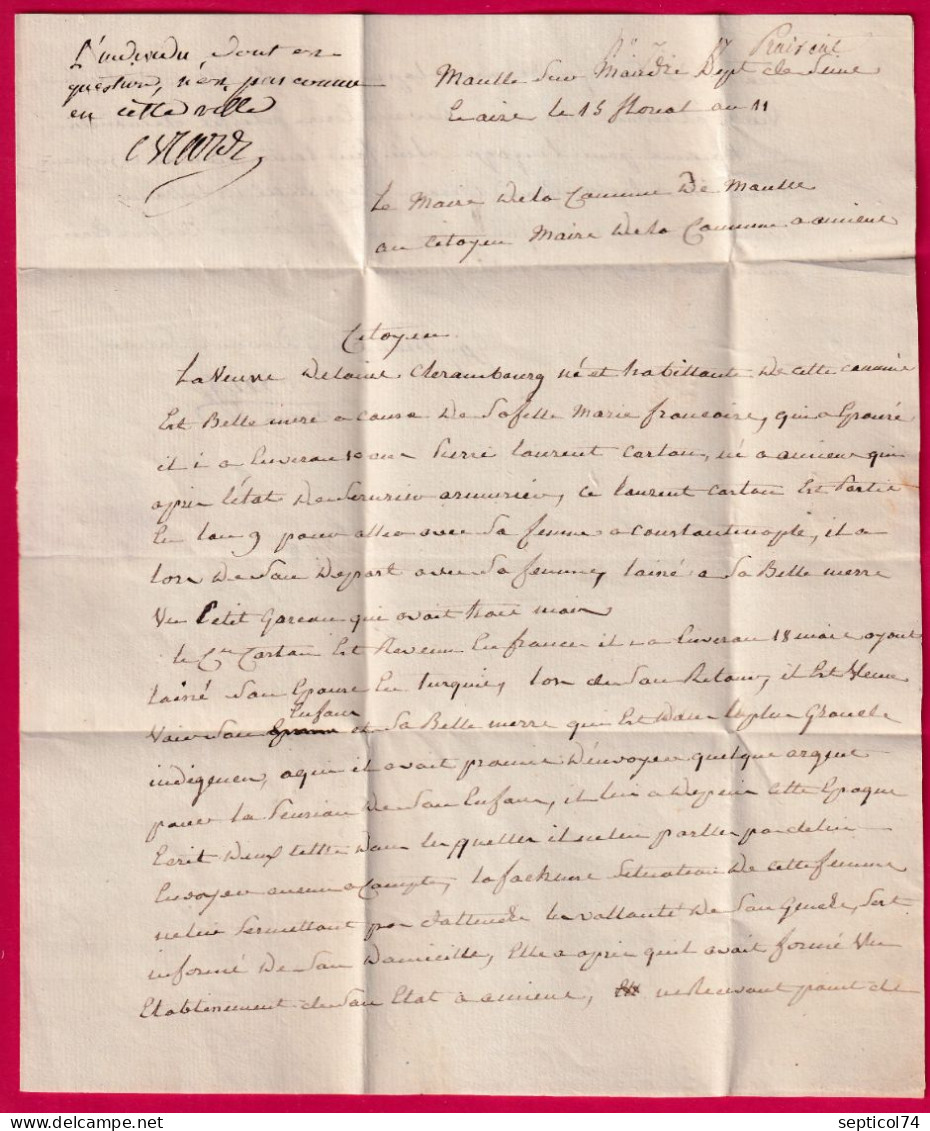 L'individu, dont est
question, n'est pas connu
en cette ville
Maulle Sur Maudre Dept de Seine
le 15 floreal an 11
Le Maire De la Commune De Maulle
au Citoyen Maire De la Commune a amiens
Citoyen
La Veuve Clerambourg né et habittante De cette comune
Est Belle mere a cause De Sa fille Marie francoise, qui a Epousé
il i a Enveron 10 ans Pierre laurent Cartau, né a amiens qui
apris l'état De Serurier armurier, ce laurent cartau Est Partie
En l'an 9 pour aller avec Sa femme a Constantinople, il a
lors De Son Depart avec Sa femme, laisé a Sa Belle merre
Un Petit Garcon qui avait trois mois
le Cen Cartau Est Revenu En france il i a Enveron 18 mois ayant
laisé Son Epouse En turquie, lors de Son Retour, il Est Venu
Voir Son Enfant et Sa Belle merre qui Est Dans la plus Grande
indigence, a qui il avait promis D'envoyer quelque argent
pour la Pension De Son Enfant, il lui a Depuis Cette Epoque
Ecrit Deux lettre Dans les quelle il ne lui parlle pas de lui
Envoyer aucun a Compte, la facheuse Situation De cette femme
ne lui Permettant pas d'attendre la vollonté De Son Gendre, s'est
informé De Son Domicille, Elle a apris qu'il avait formé Un
Etablisement de Son Etat a amiens, ne Recevant point de
septicol74